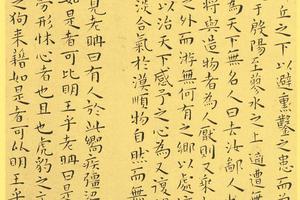 丘之下以避熏鑿之患而
於殷陽至蓼水之上適遭無
為天下無名人曰去汝鄙人也
將與造物者為人厭則又乘
之外而游無何有之鄉以處
以治天下感予之心為又復問
淡合氣於漠順物自然而無
見老聃曰有人於此嚮疾彊
如是者可比明王乎老聃曰是
勞形怵心者也且也虎豹之文
之狗來藉如是者可以明王乎